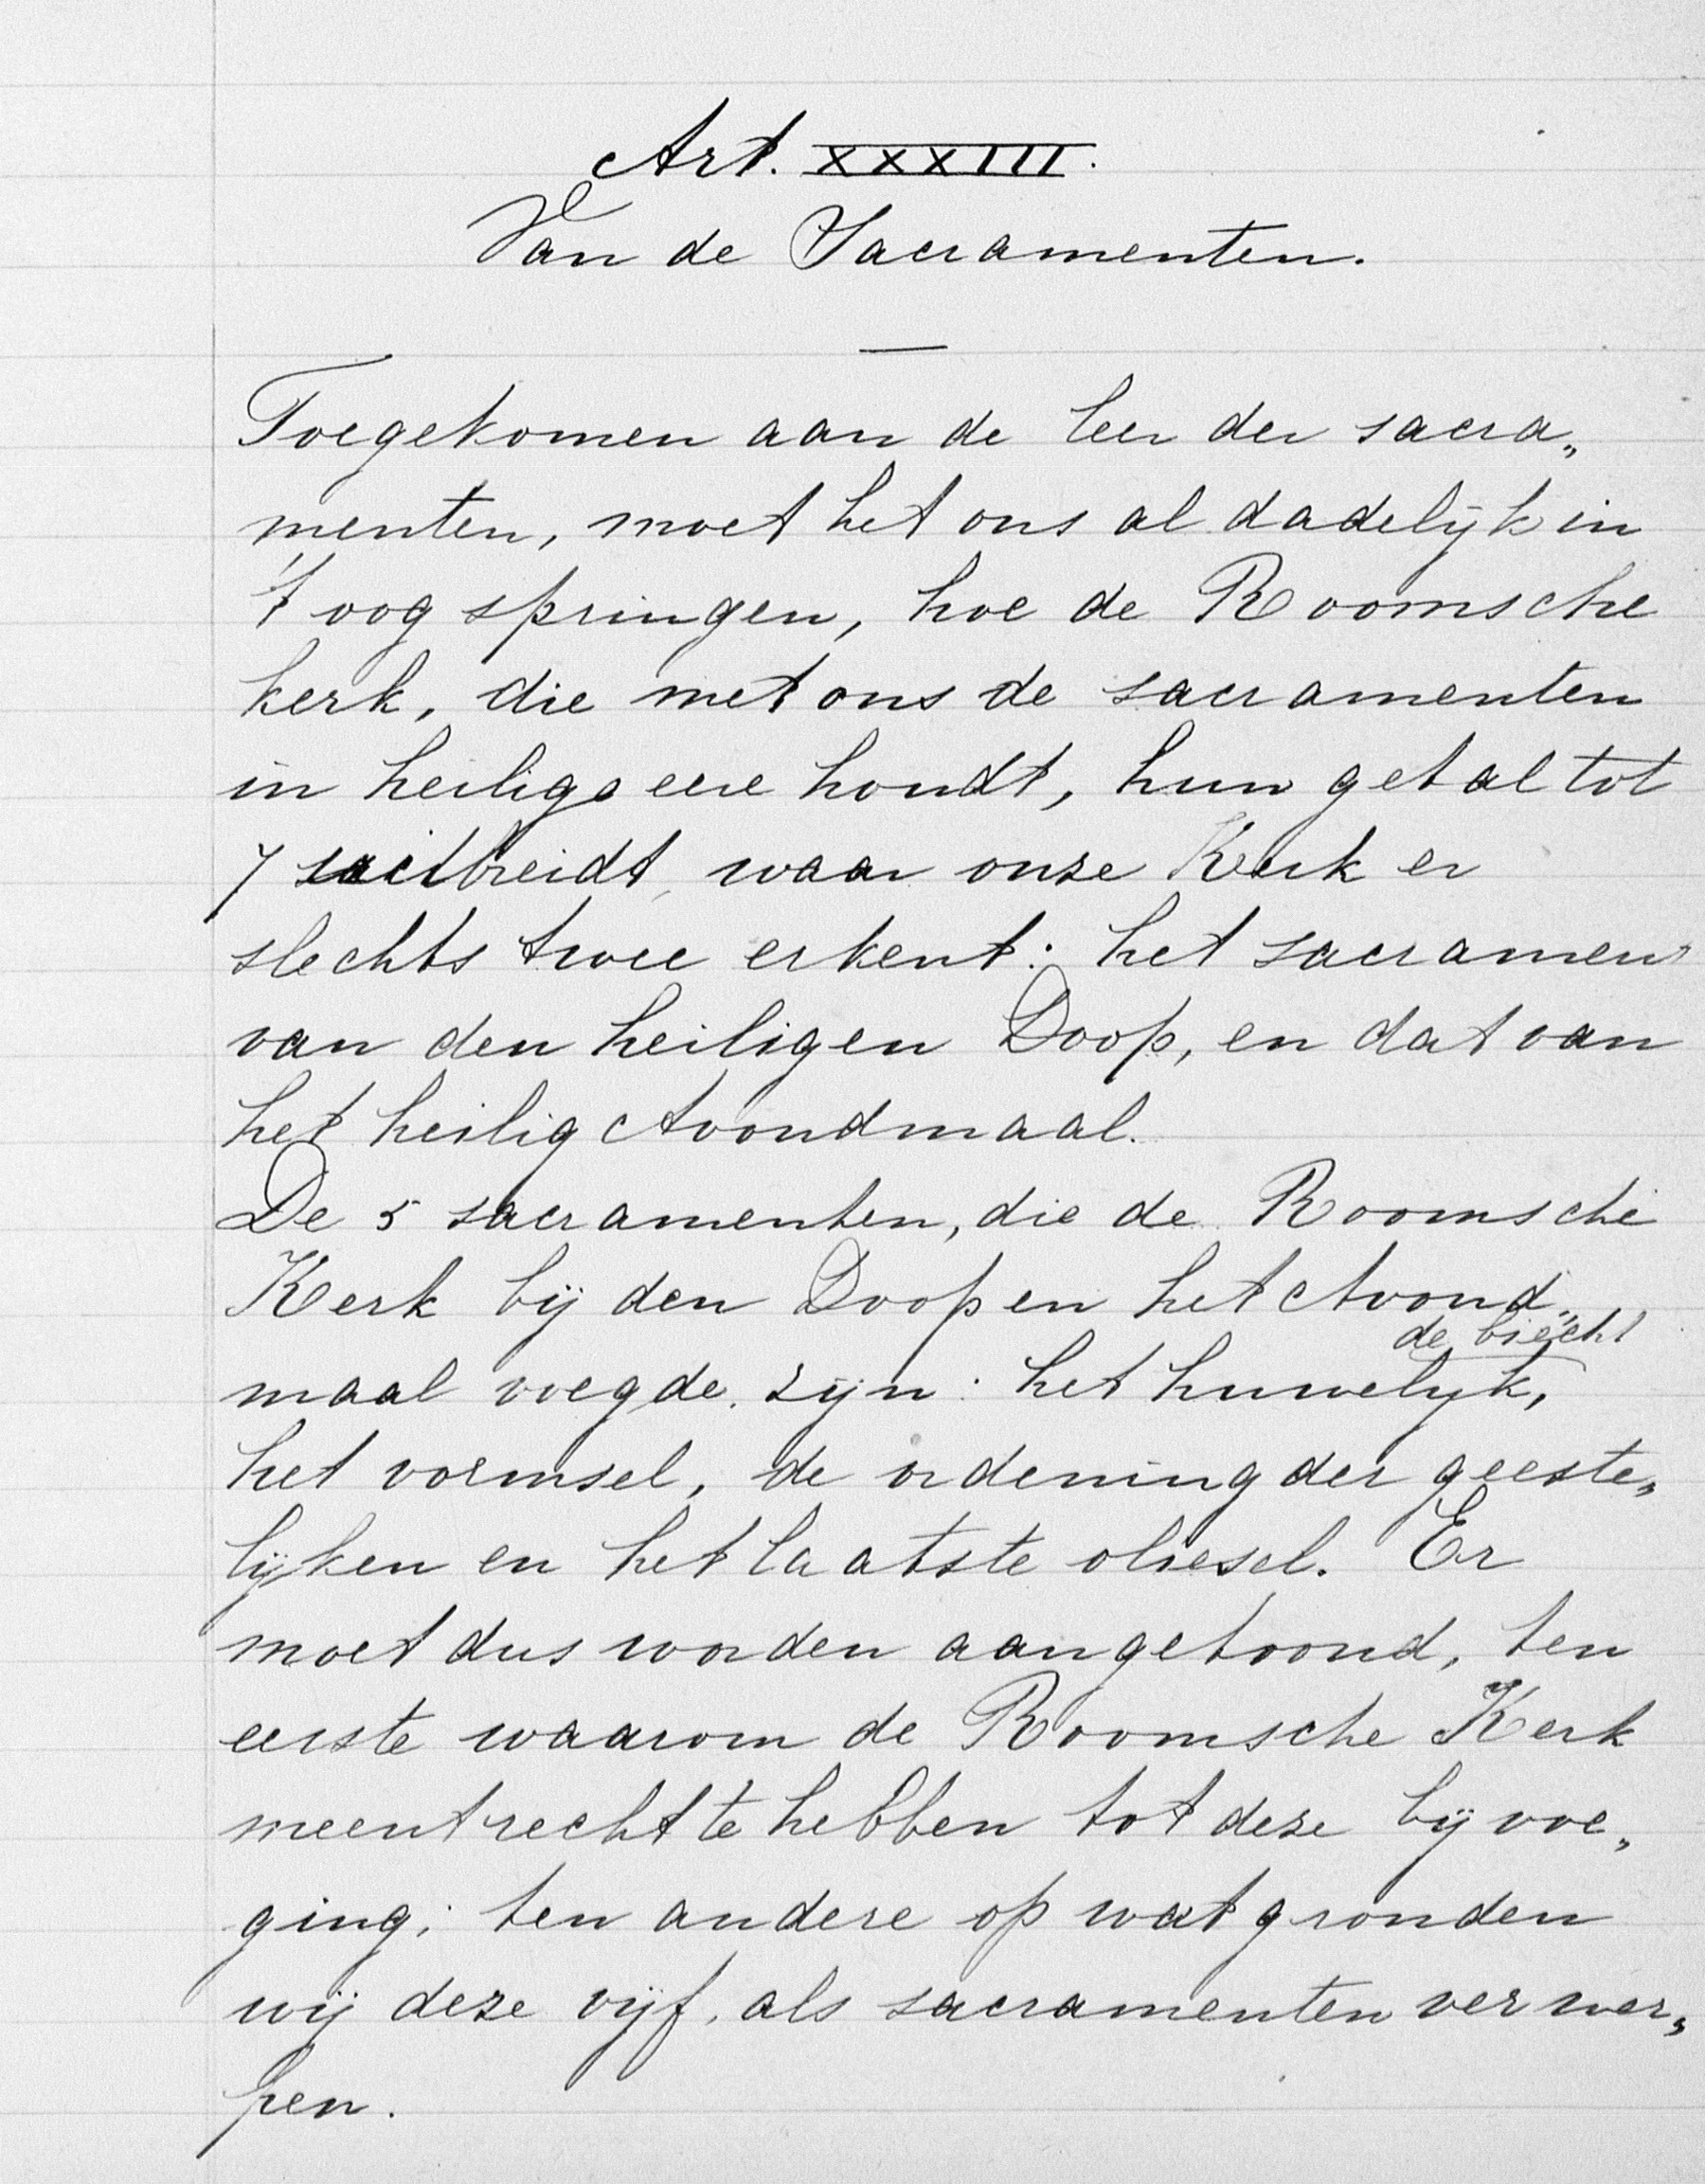 Art. XXXIII.
Van de Sacramenten.
Toegekomen aan de leer der sacra„
menten, moet het ons al dadelijk in
't oog springen, hoe de Roomsche
kerk, die met ons de sacramenten
in heilige eere houdt, hun getal tot
7 uitbreidt, waar onze Kerk er
slechts twee erkent: het sacrament
van den heiligen Doop, en dat van
het heilig Avondmaal.
De 5 sacramenten, die de Roomsche
Kerk bij den Doop en het Avond„
de biecht
maal voegde, zijn: het huwelijk,
het vormsel, de ordening der geeste„
lijken en het laatste oliesel. Er
moet dus worden aangetoond, ten
eerste waarom de Roomsche Kerk
meent recht te hebben tot deze bijvoe„
ging; ten andere op wat gronden
wij deze vijf, als sacramenten verwer„
pen.